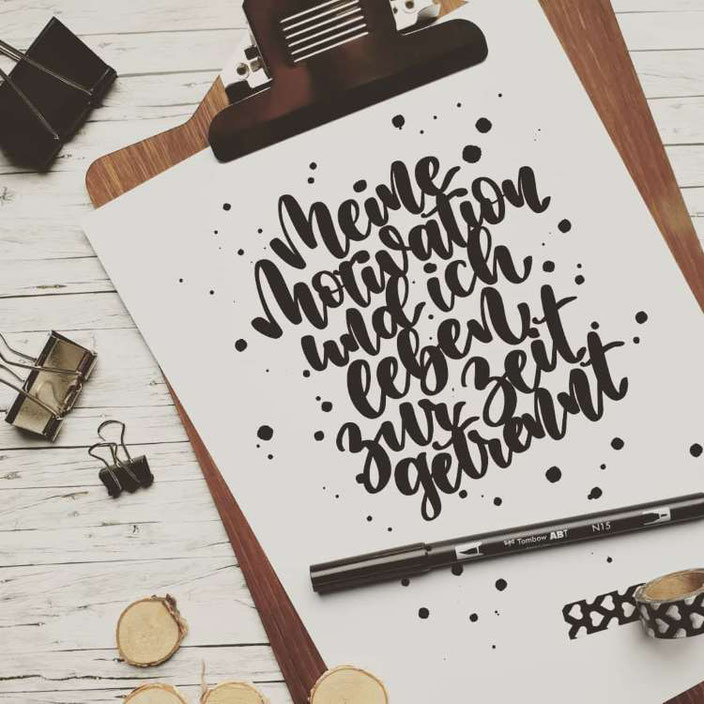 Meine
Motivation
und ich
leben
zur Zeit
getrennt
Tombow ABT N15